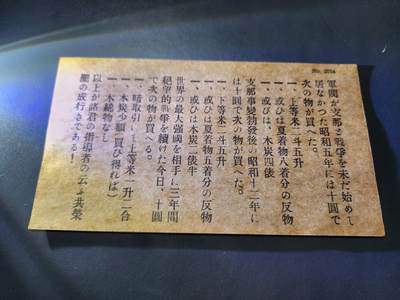 No. 2034
軍閥が支那と戰爭を未だ始めて
居なかつた昭和五年には十圓で
次の物が買へた。
一、上等米二斗五升
一、或ひは夏着物八着分の反物
一、或ひは、木炭四俵
支那事變勃發後の昭和十二年に
は十圓で次の物が買へた。
一、下等米二斗五升
一、或ひは夏着物五着分の反物
一、或ひは木炭二俵半
世界の最大強國を相手に三年間
絕望的戰爭を續けた今日、十圓
で次の物が買へる。
一、暗取引して上等米一升二合
一、木炭少額(買ひ得れば)
一、木綿物なし
以上が諸君の指導者の云ふ共榮
圈の成行きである!